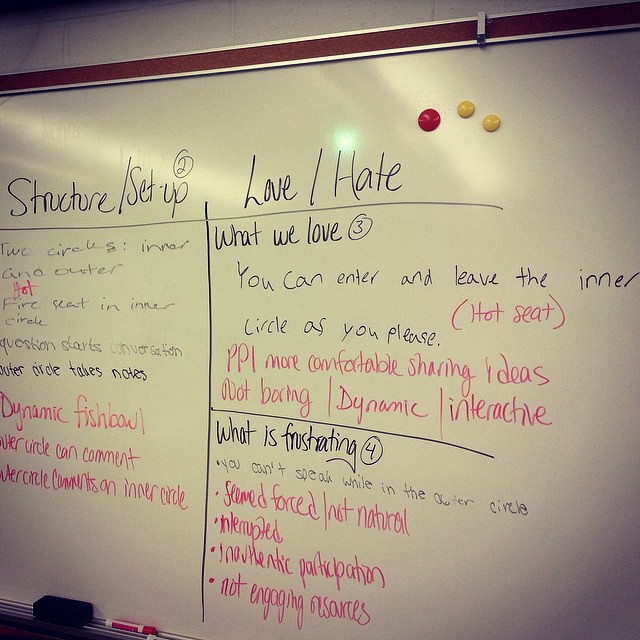 Structure/Set-up ②
Two circles: inner
and outer
Hot
Fire seat in inner
circle
question starts conversation
outer circle takes notes
Dynamic fishbowl
outer circle can comment
outer circle comments on inner circle
Love / Hate
What we love ③
You can enter and leave the inner
(Hot seat)
circle as you please.
PPl more comfortable sharing ideas
Not boring / Dynamic / interactive
What is frustrating ④
• you can't speak while in the outer circle
• Seemed forced/not natural
• interrupted
• inauthentic participation
• not engaging resources